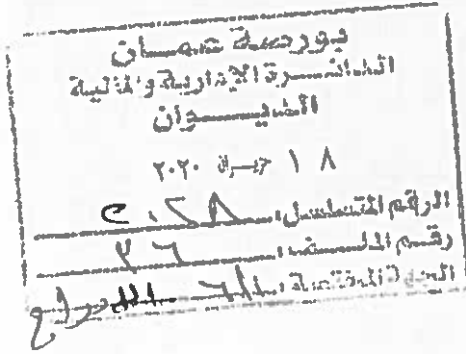 بورصة عمان
الدائرة الإدارية والمالية
الديوان
١٨ حزيران ٢٠٢٠
الرقم المتسلسل:
رقم الملف:
الجهة المختصة: